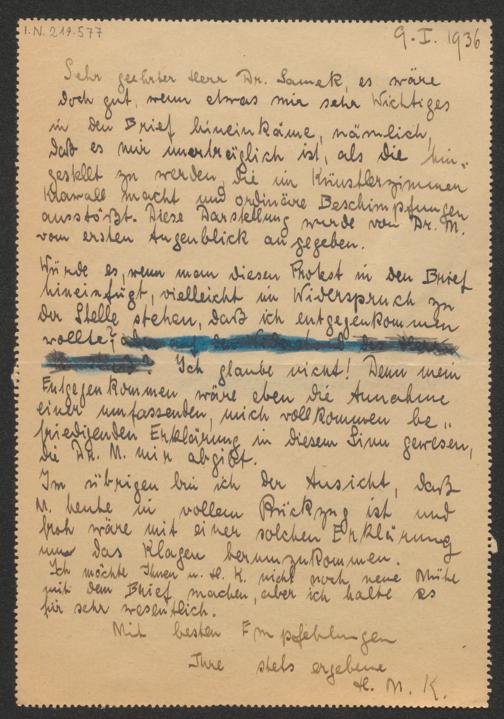 I.N. 219.577
9. I. 1936
Sehr geehrter Herr Dr. Samek, es wäre
doch gut, wenn etwas mir sehr Wichtiges
in den Brief hineinkäme, nämlich,
daß es mir unerträglich ist, als die hin„
gestellt zu werden, die im Künstlerzimmer
Krawall macht und ordinäre Beschimpfungen
ausstößt. Diese Darstellung wurde von Dr. M.
vom ersten Augenblick an gegeben.
Würde es, wenn man diesen Protest in den Brief
hineinfügt, vielleicht im Widerspruch zu
der Stelle stehen, daß ich entgegenkommen
wollte?
Ich glaube nicht! Denn mein
Entgegenkommen wäre eben die Annahme
einer umfassenden, mich vollkommen be„
friedigenden Erklärung in diesem Sinn gewesen,
die Dr. M. mir abgibt.
Im übrigen bin ich der Ansicht, daß
M. heute in vollem Rückzug ist und
froh wäre mit einer solchen Erklärung
um das Klagen herumzukommen.
Ich möchte Ihnen u. H. K. nicht noch neue Mühe
mit dem Brief machen, aber ich halte es
für sehr wesentlich.
Mit besten Empfehlungen
Ihre stets ergebene
H. M. K.